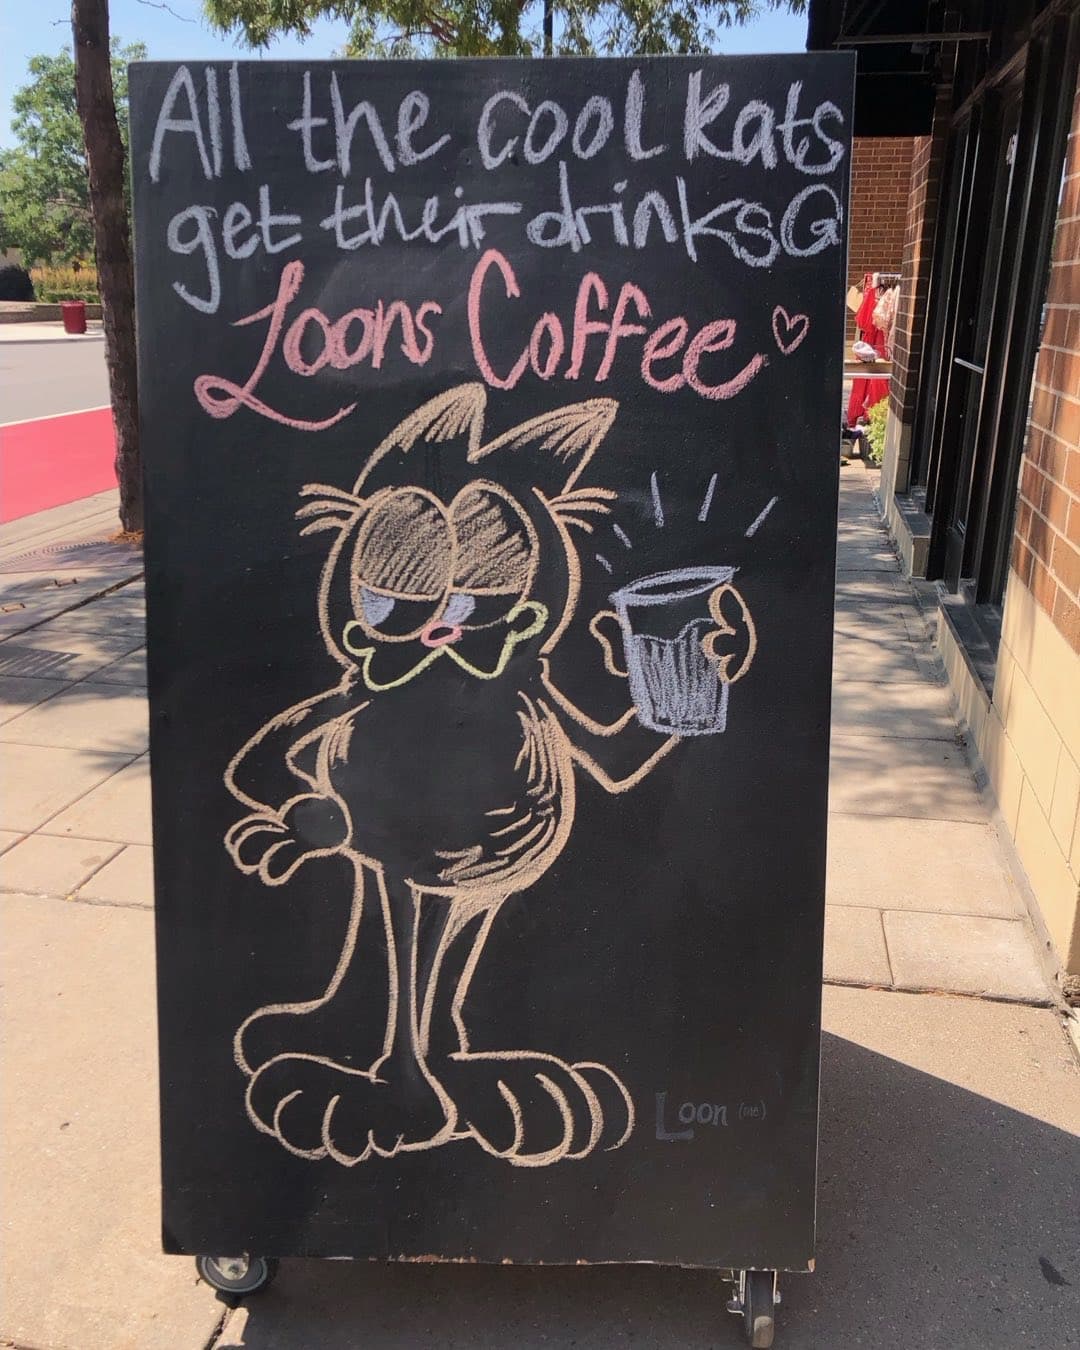 All the cool kats
get their drinks @
Loons Coffee
Loon (me)